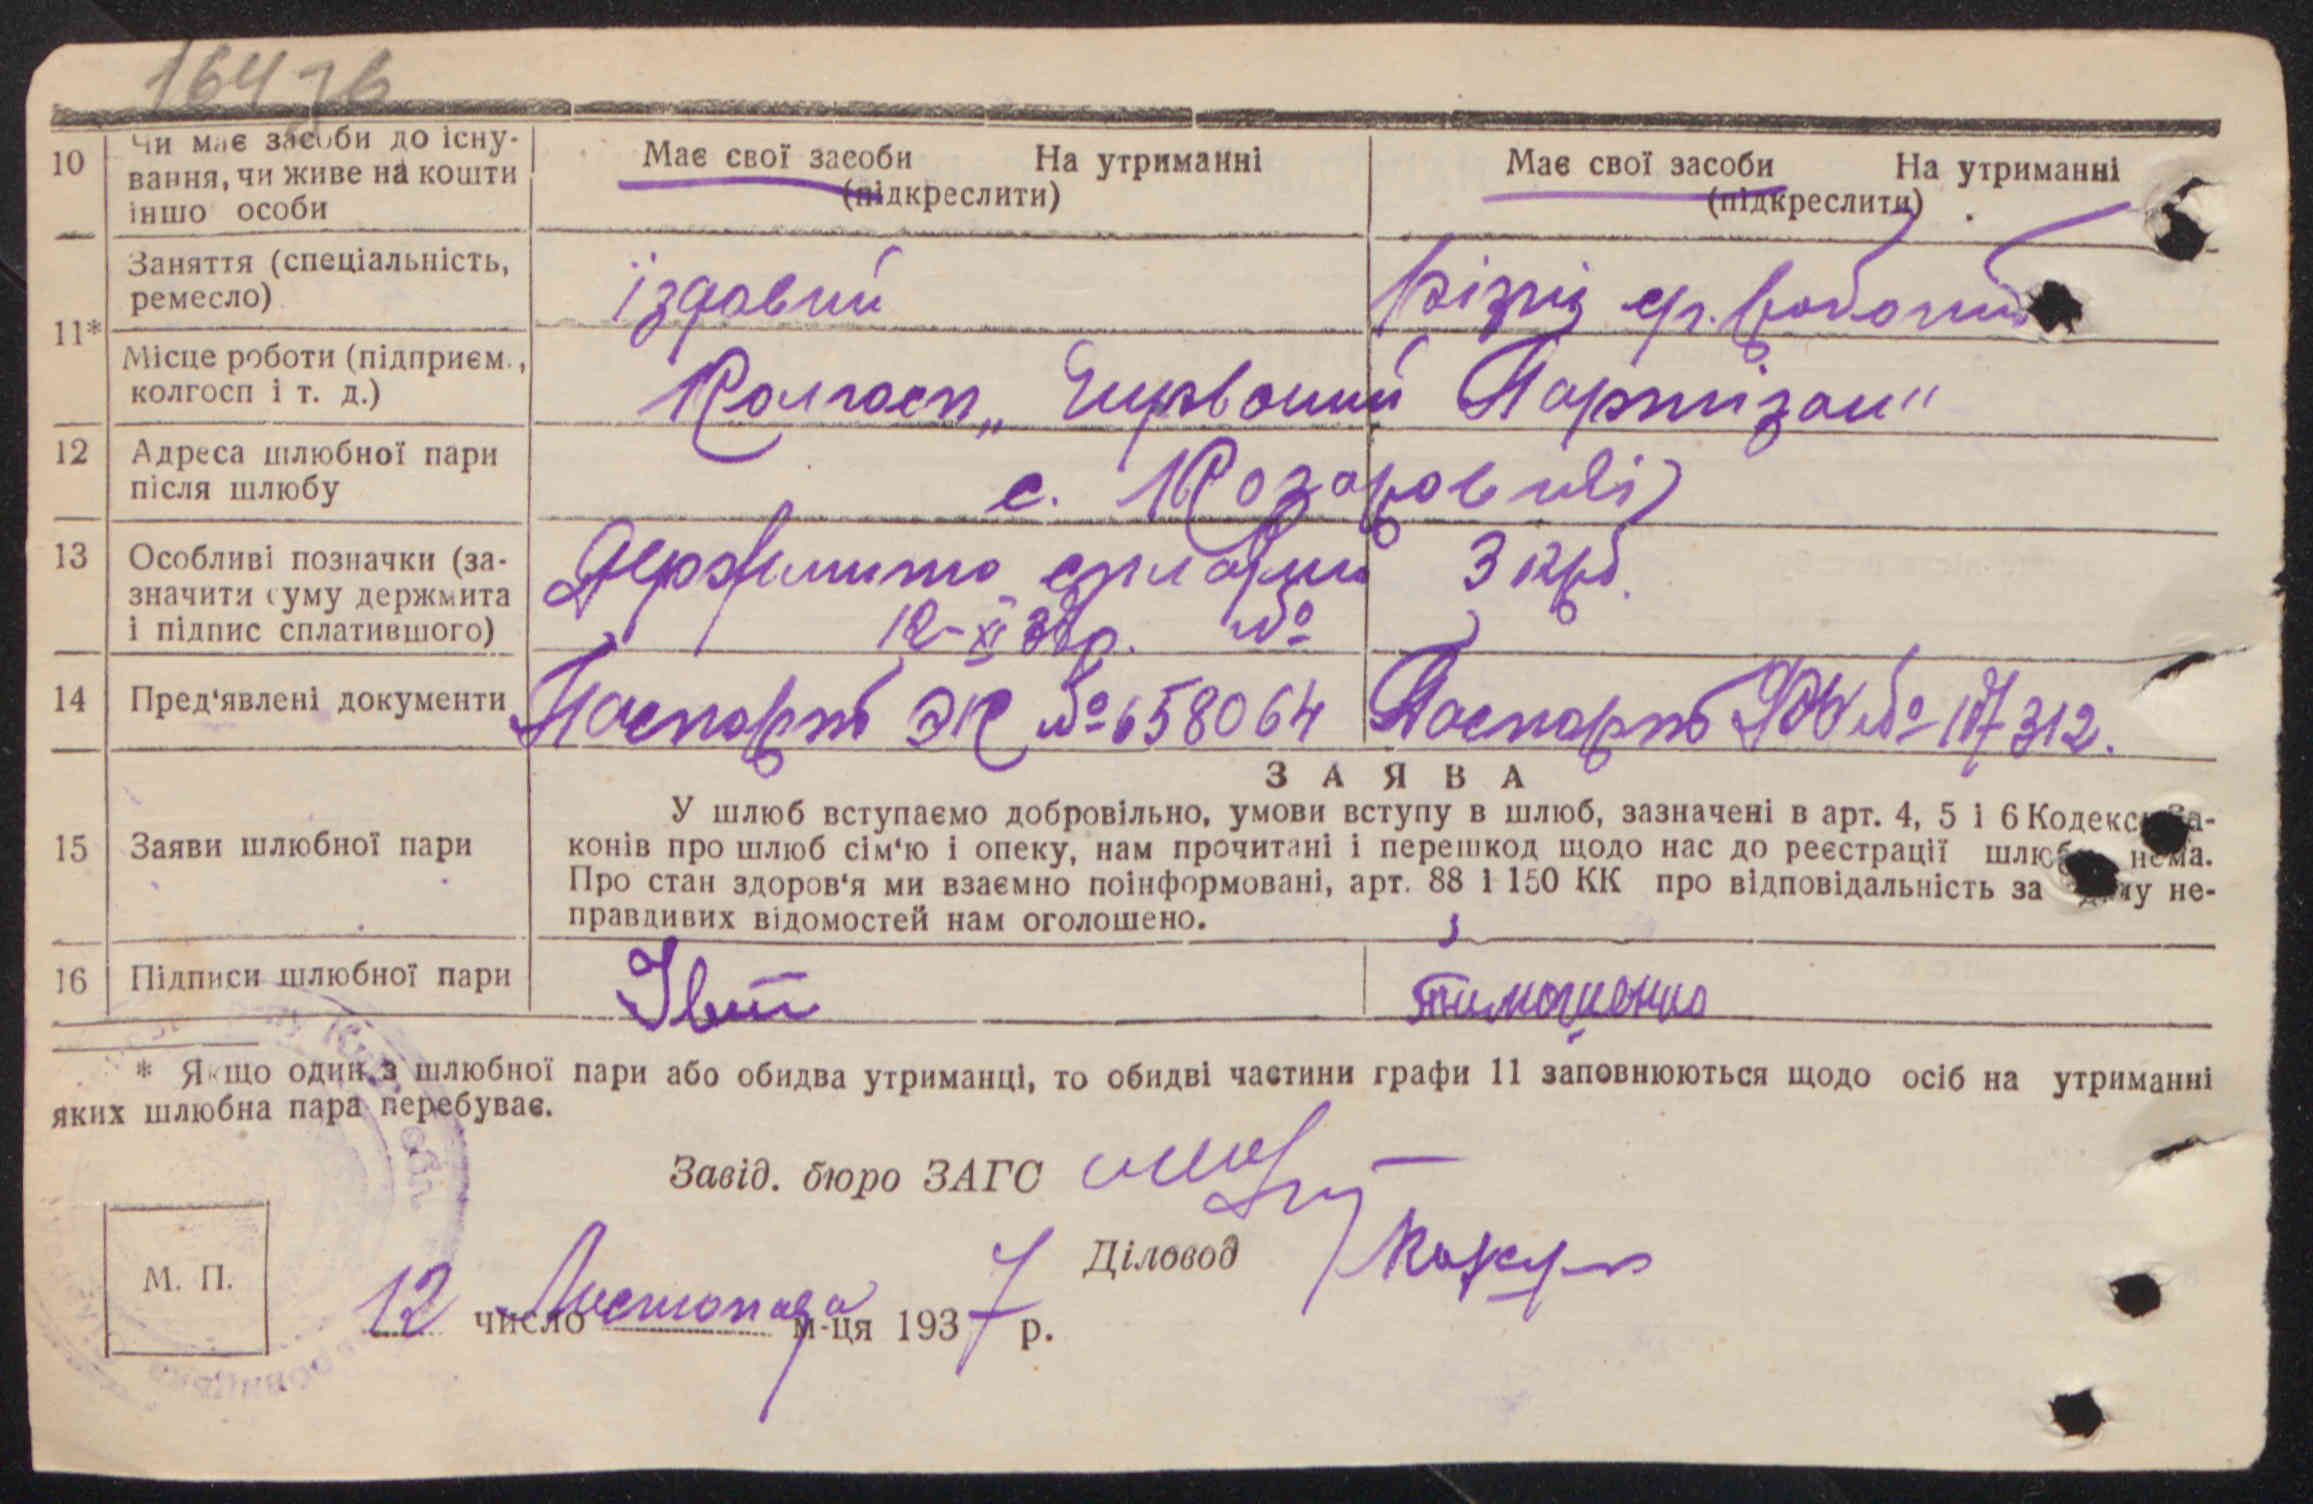 164
10 Чи має засоби до існу- Має свої засоби На утриманні Має свої засоби На утриманні
вання, чи живе на кошти (підкреслити) (підкреслити)
іншо особи
Заняття (спеціальність, їздовий різні робота
ремесло)
11*
Місце роботи (підприєм., Колгосп „Червоний Партізан"
колгосп і т. д.)
12 Адреса шлюбної пари с. Козаровичі
після шлюбу
13 Особливі позначки (за- Держмито сплатив 3 крб.
значити суму держмита 12-XI 37р. №
і підпис сплатившого)
14 Пред'явлені документи Паспорт ЭК № 658064 Паспорт № 187312.
З А Я В А
У шлюб вступаємо добровільно, умови вступу в шлюб, зазначені в арт. 4, 5 і 6 Кодексу За-
15 Заяви шлюбної пари конів про шлюб сім'ю і опеку, нам прочитані і перешкод щодо нас до реєстрації шлюбу нема.
Про стан здоров'я ми взаємно поінформовані, арт. 88 і 150 КК про відповідальність за дачу не-
правдивих відомостей нам оголошено.
16 Підписи шлюбної пари Тимошенко
* Якщо один з шлюбної пари або обидва утриманці, то обидві частини графи 11 заповнюються щодо осіб на утриманні
яких шлюбна пара перебуває.
Завід. бюро ЗАГС
Діловод
М. П.
12 число Листопада м-ця 1937 р.